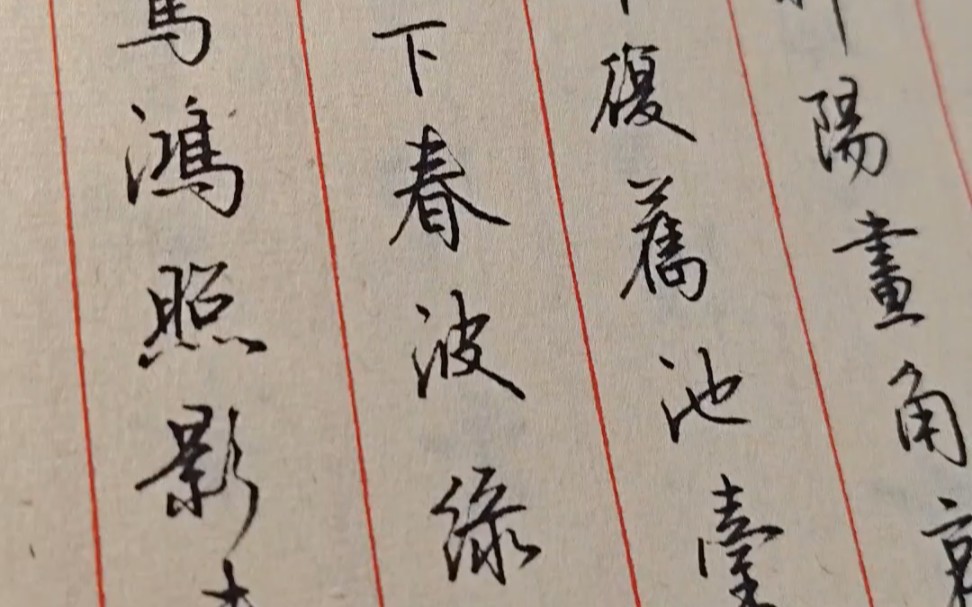 陽畫角
復舊池臺
下春波綠
鴻照影